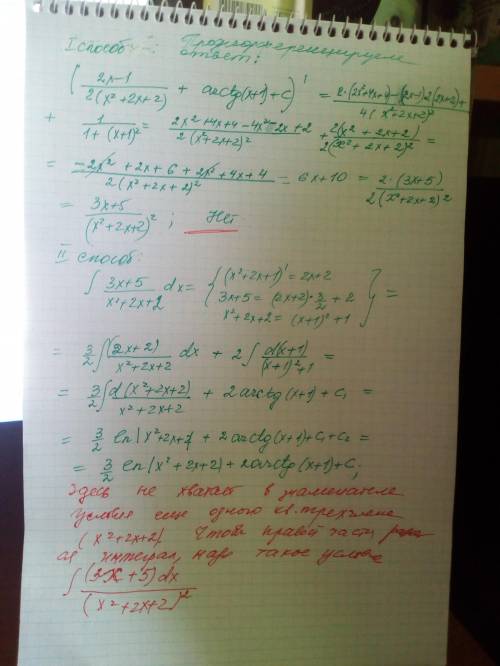 I способ: Продифференцируем
ответ:
( (2x-1)/(2(x²+2x+2)) + arctg(x+1)+C )' = (2·(2x²+4x+4)-(2x-1)2(2x+2))/(4(x²+2x+2)²) +
+ 1/(1+(x+1)²) = (2x²+4x+4-4x²-2x+2)/(2(x²+2x+2)²) + (2(x²+2x+2))/(2(x²+2x+2)²) =
= (-2x²+2x+6+2x²+4x+4)/(2(x²+2x+2)²) = 6x+10 = (2·(3x+5))/(2(x²+2x+2)²)
= (3x+5)/(x²+2x+2)² ; Нет
II способ:
∫ (3x+5)/(x²+2x+2) dx = { (x²+2x+1)' = 2x+2
3x+5 = (2x+2)·3/2 + 2
x²+2x+2 = (x+1)²+1 } =
= 3/2 ∫ (2x+2)/(x²+2x+2) dx + 2 ∫ d(x+1)/((x+1)²+1) =
= 3/2 ∫ d(x²+2x+2)/(x²+2x+2) + 2arctg(x+1) + C₁ =
= 3/2 ln|x²+2x+2| + 2arctg(x+1)+C₁+C₂ =
= 3/2 ln|x²+2x+2| + 2arctg(x+1)+C;
Здесь не хватает в знаменателе
условия еще одного кв. трехчлена
(x²+2x+2). Чтоб правой части
интеграл, надо такое условие
∫ (3x+5)dx/(x²+2x+2)²